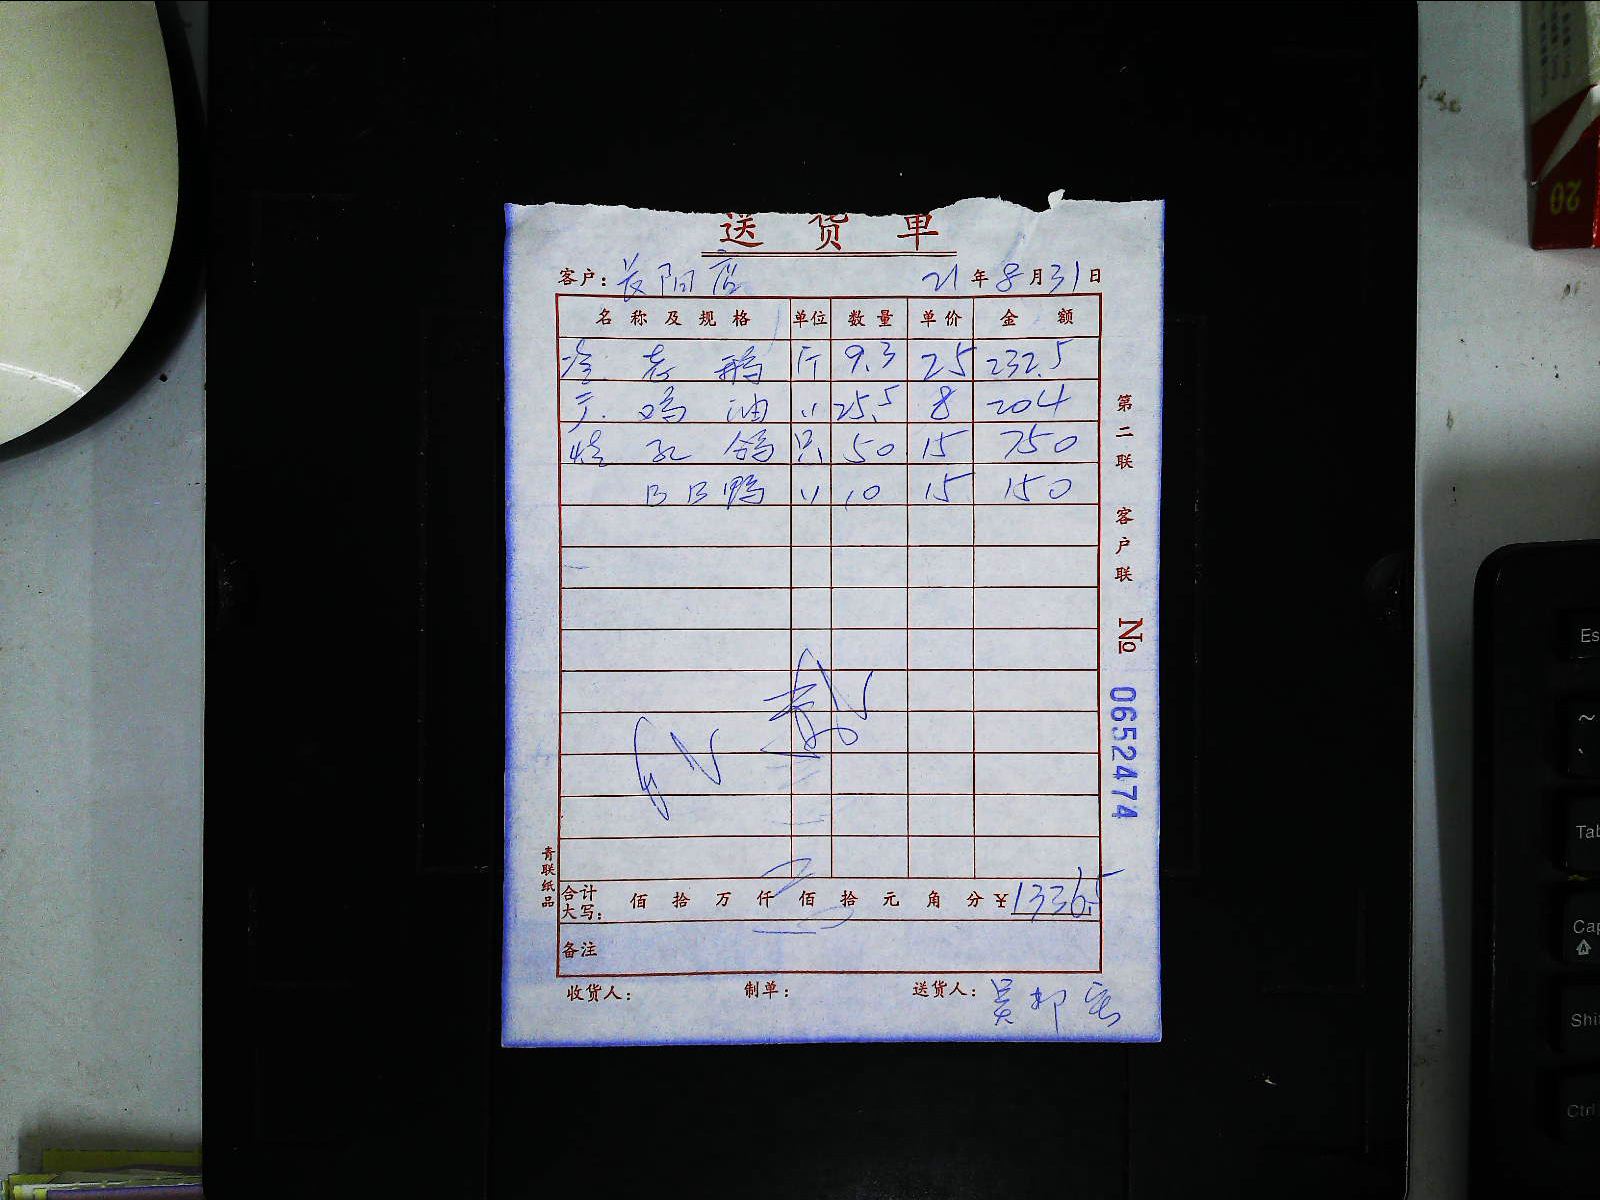 送货单
客户: 长阳店 21年8月31日
名称及规格 单位 数量 单价 金额
老鹅 斤 9.3 25 232.5
鸡油 〃 25.5 8 204
孔鸽 只 50 15 750
BB鸭 〃 10 15 150
第二联 客户联
№ 0652474
青联纸品
合计大写: 佰 拾 万 仟 佰 拾 元 角 分 ¥1336.5
备注
收货人: 制单: 送货人: 吴
20
Es
~
`
Tab
Cap
Shi
Ctrl